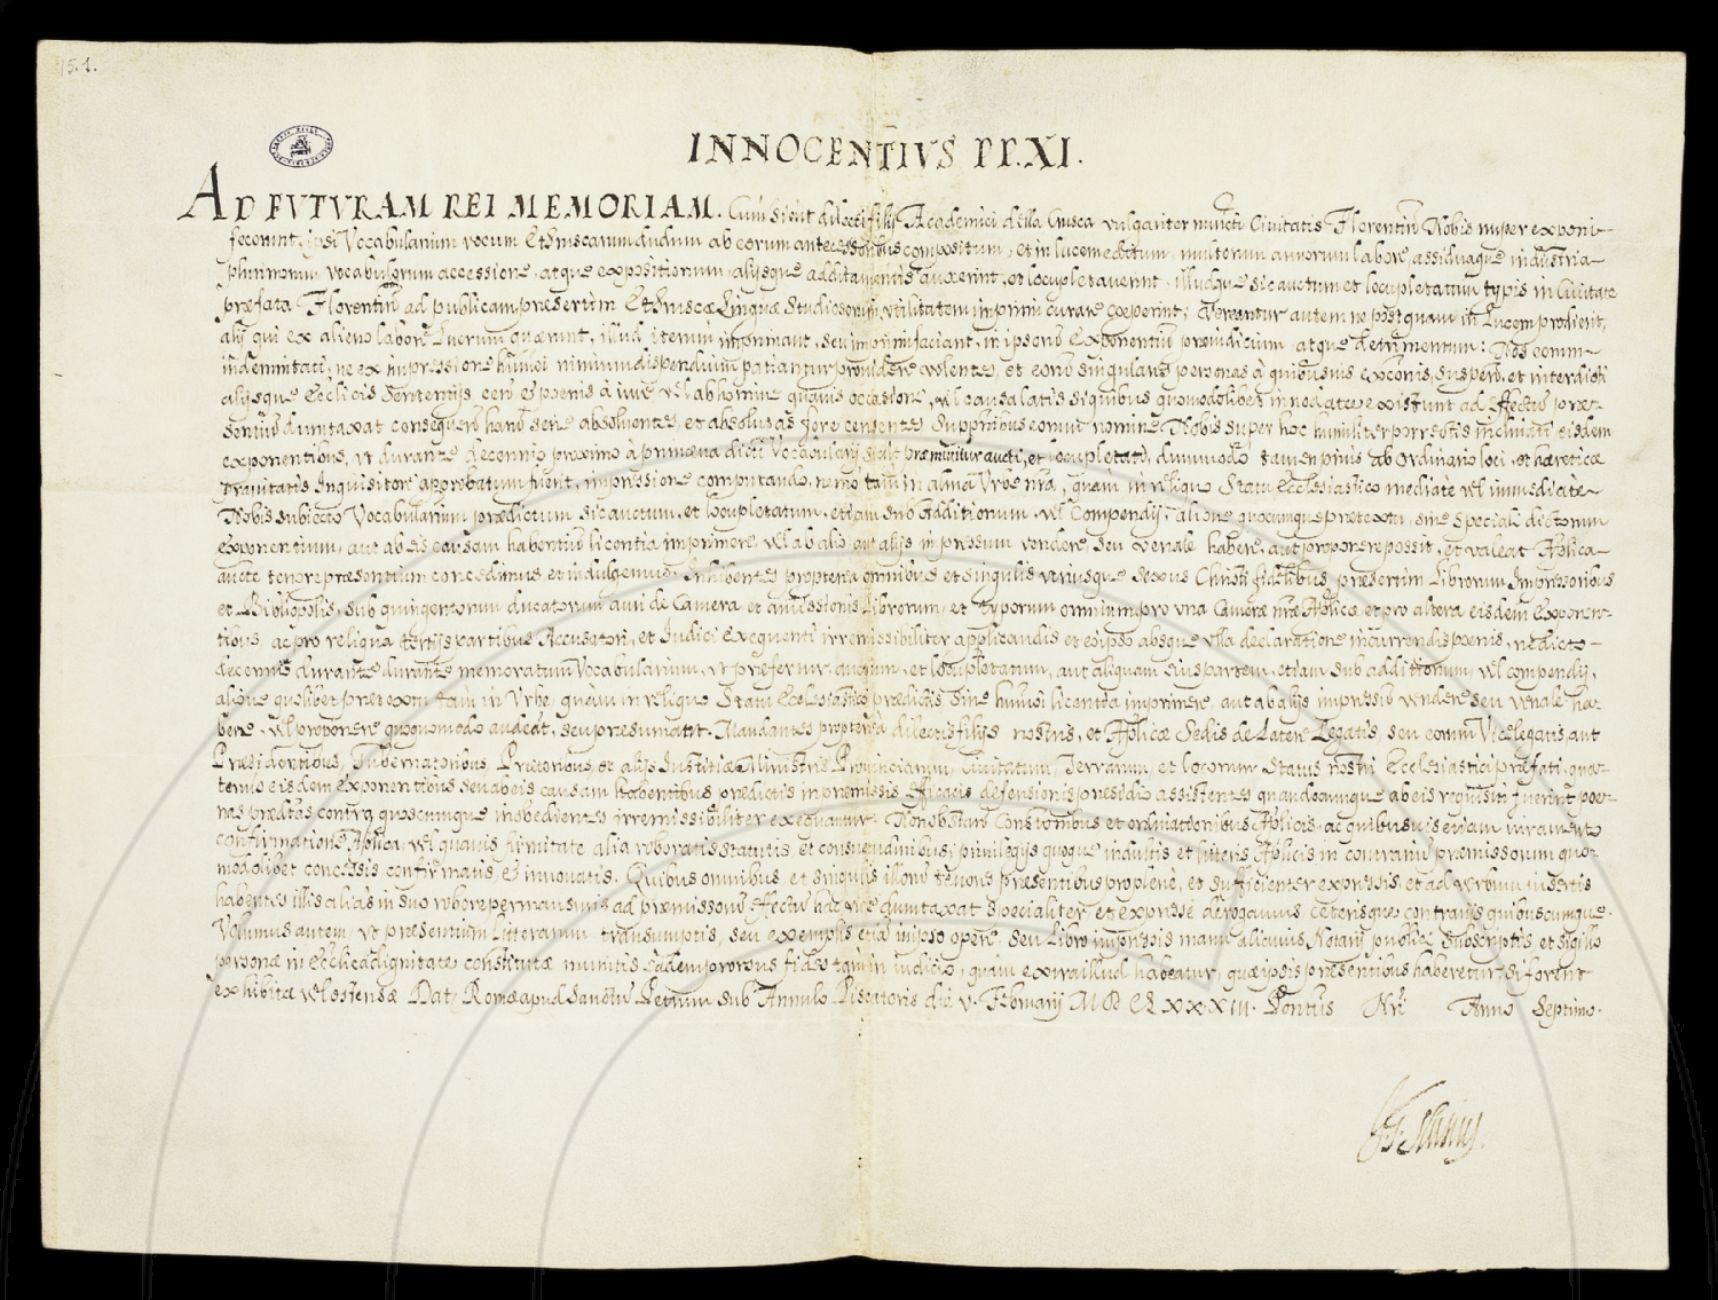 15.1.
INNOCENTIVS PP. XI.
AD FVTVRAM REI MEMORIAM. Cum sicut dilecti filij Academici della Crusca vulgariter nuncti Civitatis Florentin Nobis nuper exponi
fecerunt, ipsi Vocabularium vocum Ethruscarum dudum ab eorum antecessoribus compositum, et in lucem editum, multorum annorum labore, assiduaque industria
plurimorum vocabulorum accessione, atque expositionum, alijsque additamentis auxerint, et locupletaverint, illudque sic auctum et locupletatum typis in Civitate
præfata Florentin ad publicam præsertim Ethruscæ Linguæ studiosorum utilitatem imprimi curare coeperint; Vereantur autem ne postquam in Lucem prodierit,
alij qui ex alieno labore Lucrum quærunt, illud iterum imprimant, seu imprimi faciant, in ipsorū Exponentiū præiudicium, atque detrimentum: Nos eorum
indemnitati, ne ex impressione hūmoi nimium dispendium patiantur providere volentes, et eorū singulares personas à quibusvis excōnis, suspens, et interdicti
alijsque Ecclicis sententijs cens et poenis à iure vel ab homine quavis occasione, vel causa latis siquibus quomodolibet innodatæ existunt ad effectū præ-
sentiū dumtaxat consequen harū serie absolventes, et absolutas fore censentes Supplibus eorum nomine Nobis super hoc humiliter porrectis inclinati eisdem
exponentibus, ut durante decennio proximo à primæva dicti Vocabularij sicut præmittitur aucti, et locupletati, dummodo tamen prius ab Ordinario loci, et hæreticæ
pravitatis Inquisitore approbatum fuerit, impressione computando, nemo tam in alma Urbe nra, quam in reliquo Statu Ecclesiastico mediate vel immediate
Nobis subiecto Vocabularium prædictum sic auctum, et locupletatum, etiam sub Additionum, vel Compendij, aliove quocumque prætextu, sine speciali dictorum
Exponentium, aut ab eis causam habentiū licentia imprimere, vel ab alio aut alijs impressum vendere, seu venale habere, aut proponere possit, et valeat Aplica
aucte tenore præsentium concedimus et indulgemus. Inhibentes propterea omnibus et singulis utriusque sexus Christi fidelibus, præsertim Librorum Impressoribus
et Bibliopolis, sub quingentorum ducatorum auri de Camera et amissionis Librorum, et typorum omnium pro una Cameræ nræ Aplicæ, et pro altera eisdem Exponen-
tibus, ac pro reliqua tertijs partibus Accusatori, et Iudici exequenti irremissibiliter applicandis et eoipso absque ulla declaratione incurrendis poenis, ne dicto
decennio durante durante memoratum Vocabularium, ut præfertur, auctum, et locupletatum, aut aliquam eius partem, etiam sub additionum, vel compendij,
aliove quolibet prætextu tam in Urbe, quam in reliquo Statu Ecclesiastico prædictis sine hūmoi licentia imprimere, aut ab alijs impressū vendere seu venale ha-
bere, vel proponere quoquomodo audeat, seu præsumat. Mandantes propterea dilectis filijs nostris, et Aplicæ Sedis de Latere Legatis, seu eorum Vicelegatis, aut
Præsidentibus, Gubernatoribus, Prætoribus, et alijs Iustitiæ Ministris Provinciarum, Civitatum, Terrarum, et locorum Status nostri Ecclesiastici præfati, qua-
tenus eisdem exponentibus seu ab eis causam habentibus prædictis in præmissis efficacis defensionis præsidio assistentes quandocumque ab eis requisiti fuerint poe-
nas prædtas contra quoscumque inobedientes irremissibiliter exequantur. Non obstan Constonibus et ordinationibus Aplicis, ac quibusvis etiam iuramento
confirmatione Aplica, vel quavis firmitate alia roboratis statutis, et consuetudinibus, privilegijs quoque indultis et litteris Aplicis in contrariū præmissorum quo-
modolibet concessis confirmatis, et innovatis. Quibus omnibus et singulis illorū tenores præsentibus pro plene, et sufficienter expressis, et ad verbum insertis
habentes illis alias in suo robore permansuris ad præmissorū effectū hac vice dumtaxat specialiter, et expresse derogamus ceterisque contrarijs quibuscumque.
Volumus autem, ut præsentium Litterarum transumptis, seu exemplis etiā in ipso opere, seu Libro impressis manu alicuius Notarij publici subscriptis et sigillo
personæ in Ecclica dignitate constitutæ munitis eadem prorsus fides tam in iudicio, quam extra illud habeatur, quæ ipsis præsentibus haberetur, si forent
exhibitæ vel ostensæ Dat Romæ apud Sanctū Petrum sub Annulo Piscatoris die V. Februarij MDCLXXXIII. Pontus Nri Anno Septimo.